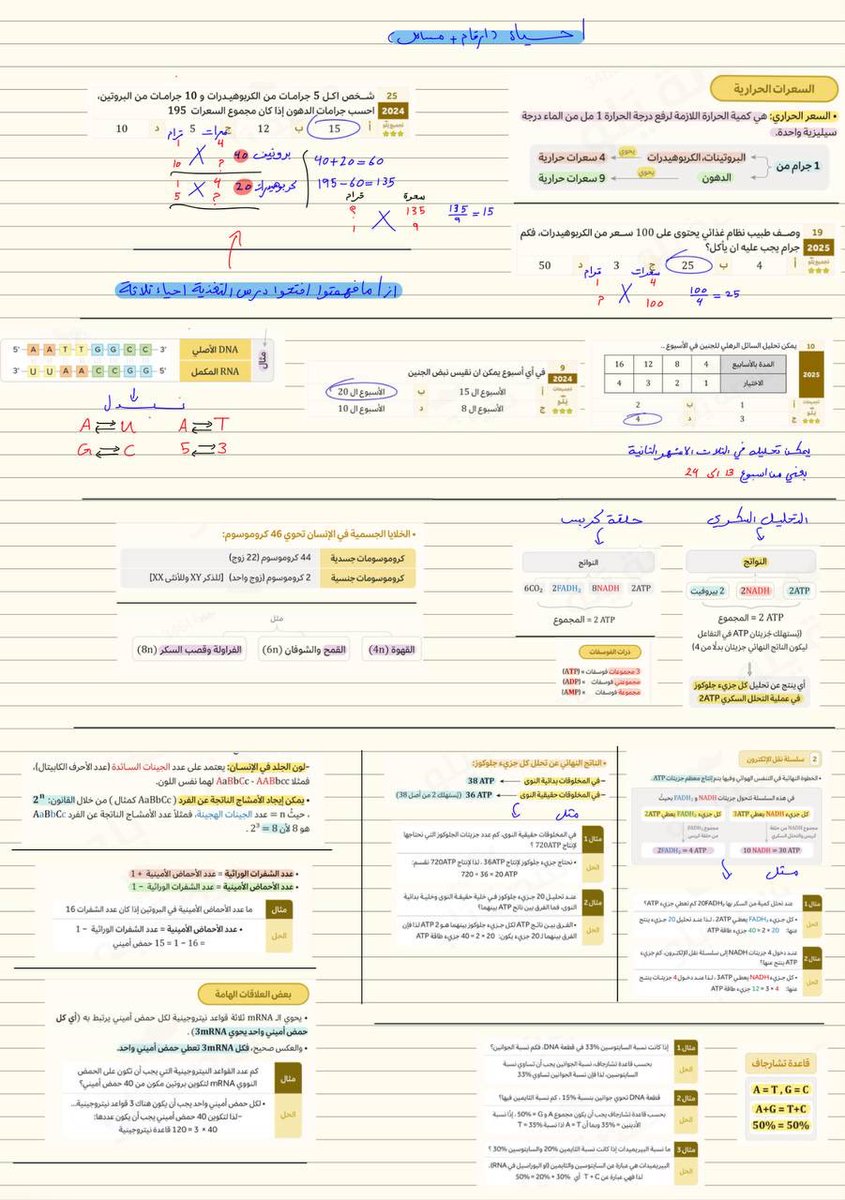 أحياء (أرقام + مسائل)
السعرات الحرارية
• السعر الحراري: هي كمية الحرارة اللازمة لرفع درجة الحرارة 1 مل من الماء درجة
سيليزية واحدة.
1 جرام من
البروتينات، الكربوهيدرات
يحوي
4 سعرات حرارية
الدهون
يحوي
9 سعرات حرارية
25
2024
شخص اكل 5 جرامات من الكربوهيدرات و 10 جرامات من البروتين،
احسب جرامات الدهون إذا كان مجموع السعرات 195
أ 15 ب 12 ج 5 د 10
سعرات جرام
4 1
بروتين 40 ? 10
4 1
كربوهيدرات 20 ? 5
40+20=60
195-60=135
سعرة جرام
135 ?
9 1
135/9 = 15
19
2025
وصف طبيب نظام غذائي يحتوى على 100 سعر من الكربوهيدرات، فكم
جرام يجب عليه ان يأكل؟
أ 4 ب 25 ج 3 د 50
سعرات جرام
4 1
100 ?
100/4 = 25
إذا ما فهمتوا افتحوا درس التغذية احياء ثلاثة
10
2025
يمكن تحليل السائل الرهلي للجنين في الأسبوع...
المدة بالأسابيع 4 8 12 16
الاختيار 1 2 3 4
أ 1 ب 2
ج 3 د 4
يمكن تحليله في الثلاث الاشهر الثانية
يعني من اسبوع 13 الى 24
9
2024
في أي أسبوع يمكن ان نقيس نبض الجنين
أ الأسبوع ال 15 ب الأسبوع ال 20
ج الأسبوع ال 8 د الأسبوع ال 10
مثال
DNA الأصلي 5' A A T T G G C C 3'
RNA المكمل 3' U U A A C C G G 5'
نبدل
A ⇄ U A ⇄ T
G ⇄ C 5 ⇄ 3
التحليل السكري
النواتج
2ATP 2NADH 2 بيروفيت
2 ATP = المجموع
(يُستهلك جُزيئان ATP في التفاعل
ليكون الناتج النهائي جزيئان بدلًا من 4)
أي ينتج عن تحليل كل جزيء جلوكوز
في عملية التحلل السكري 2ATP
حلقة كربس
النواتج
6CO₂ 2FADH₂ 8NADH 2ATP
2 ATP = المجموع
ذرات الفوسفات
3 مجموعات فوسفات = (ATP)
مجموعتي فوسفات = (ADP)
مجموعة فوسفات = (AMP)
• الخلايا الجسمية في الإنسان تحوي 46 كروموسوم:
كروموسومات جسدية 44 كروموسوم (22 زوج)
كروموسومات جنسية 2 كروموسوم (زوج واحد) [للذكر XY وللأنثى XX]
مثل
القهوة (4n) القمح والشوفان (6n) الفراولة وقصب السكر (8n)
2 سلسلة نقل الإلكترون
• الخطوة النهائية في التنفس الهوائي وفيها يتم إنتاج معظم جزيئات ATP.
في هذه السلسلة تتحول جزيئات NADH و FADH₂ بحيث:
كل جزيء NADH يعطي 3ATP كل جزيء FADH₂ يعطي 2ATP
10 NADH = 30 ATP 2FADH₂ = 4 ATP
مثل
مثال 1 عند تحلل كمية من السكر بها 20FADH₂ كم تعطي جزيء ATP؟
الحل • كل جزيء FADH₂ يعطي 2ATP ، لذا عند تحليل 20 جزيء ينتج
عنها: 20 × 2 = 40 جزيء طاقة ATP
مثال 2 عند دخول 4 جزيئات NADH إلى سلسلة نقل الإلكترون، كم جزيء
ATP ينتج عنها؟
الحل • كل جزيء NADH يعطي 3ATP ، لذا عند دخول 4 جزيئات ينتج
عنها: 4 × 3 = 12 جزيء طاقة ATP
• الناتج النهائي عن تحلل كل جزيء جلوكوز:
– في المخلوقات بدائية النوى 38 ATP
– في المخلوقات حقيقية النوى 36 ATP (يُستهلك 2 من أصل 38)
مثل
مثال 1 في المخلوقات حقيقية النوى، كم عدد جزيئات الجلوكوز التي تحتاجها
لإنتاج 720ATP ؟
الحل • نحتاج جزيء جلوكوز لإنتاج 36ATP ، لذا لإنتاج 720ATP نقسم:
720 ÷ 36 = 20 ATP
مثال 2 عند تحليل 20 جزيء جلوكوز في خلية حقيقية النوى وخلية بدائية
النوى، فما الفرق بين ناتج ATP بينهما؟
الحل • الفرق بين ناتج ATP لكل جزيء جلوكوز بينهما هو 2 ATP لذا فإن
الفرق بينهما لـ 20 جزيء يكون: 20 × 2 = 40 جزيء طاقة ATP
–لون الجلد في الإنسان: يعتمد على عدد الجينات السائدة (عدد الأحرف الكابيتال)،
فمثلًا AaBbCc - AABbcc لهما نفس اللون.
• يمكن إيجاد الأمشاج الناتجة عن الفرد (AaBbCc كمثال) من خلال القانون: 2ⁿ
، حيث n = عدد الجينات الهجينة، فمثلًا عدد الأمشاج الناتجة عن الفرد AaBbCc
هو 8 لأن 2³ = 8 .
• عدد الشفرات الوراثية = عدد الأحماض الأمينية + 1
• عدد الأحماض الأمينية = عدد الشفرات الوراثية − 1
مثال ما عدد الأحماض الأمينية في البروتين إذا كان عدد الشفرات 16
الحل • عدد الأحماض الأمينية = عدد الشفرات الوراثية − 1
= 16 − 1 = 15 حمض أميني
بعض العلاقات الهامة
• يحوي الـ mRNA ثلاثة قواعد نيتروجينية لكل حمض أميني يرتبط به (أي كل
حمض أميني واحد يحوي 3mRNA) .
• والعكس صحيح، فكل 3mRNA تعطي حمض أميني واحد.
مثال كم عدد القواعد النيتروجينية التي يجب أن تكون على الحمض
النووي mRNA لتكوين بروتين مكون من 40 حمض أميني؟
الحل • لكل حمض أميني واحد يجب أن يكون هناك 3 قواعد نيتروجينية...
–لذا لتكوين 40 حمض أميني يجب أن يكون عددها:
40 × 3 = 120 قاعدة نيتروجينية
قاعدة تشارجاف
A = T , G = C
A+G = T+C
50% = 50%
مثال 1 إذا كانت نسبة السايتوسين 33% في قطعة DNA، فكم نسبة الجوانين؟
الحل بحسب قاعدة تشارجاف، نسبة الجوانين يجب أن تساوي نسبة
السايتوسين، لذا فإن نسبة الجوانين تساوي 33%
مثال 2 قطعة DNA تحوي جوانين بنسبة 15% ، كم نسبة الثايمين فيها؟
الحل بحسب قاعدة تشارجاف يجب أن يكون مجموع A و G = 50% ، إذًا نسبة
الأدينين = 35% وبما أن A = T اذا نسبة T = 35%
مثال 3 ما نسبة البيريميدات إذا كانت نسبة الثايمين 20% والسايتوسين 30% ؟
الحل البيريميدات هي عبارة عن السايتوسين والثايمين (او اليوراسيل في RNA)،
لذا فهي عبارة عن T + C أي 30% + 20% = 50%